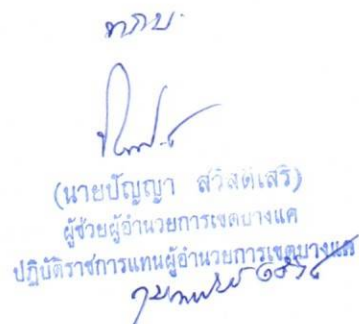 ทราบ
(นายปัญญา สวัสดิ์เสรี)
ผู้ช่วยผู้อำนวยการเขตบางแค
ปฏิบัติราชการแทนผู้อำนวยการเขตบางแค